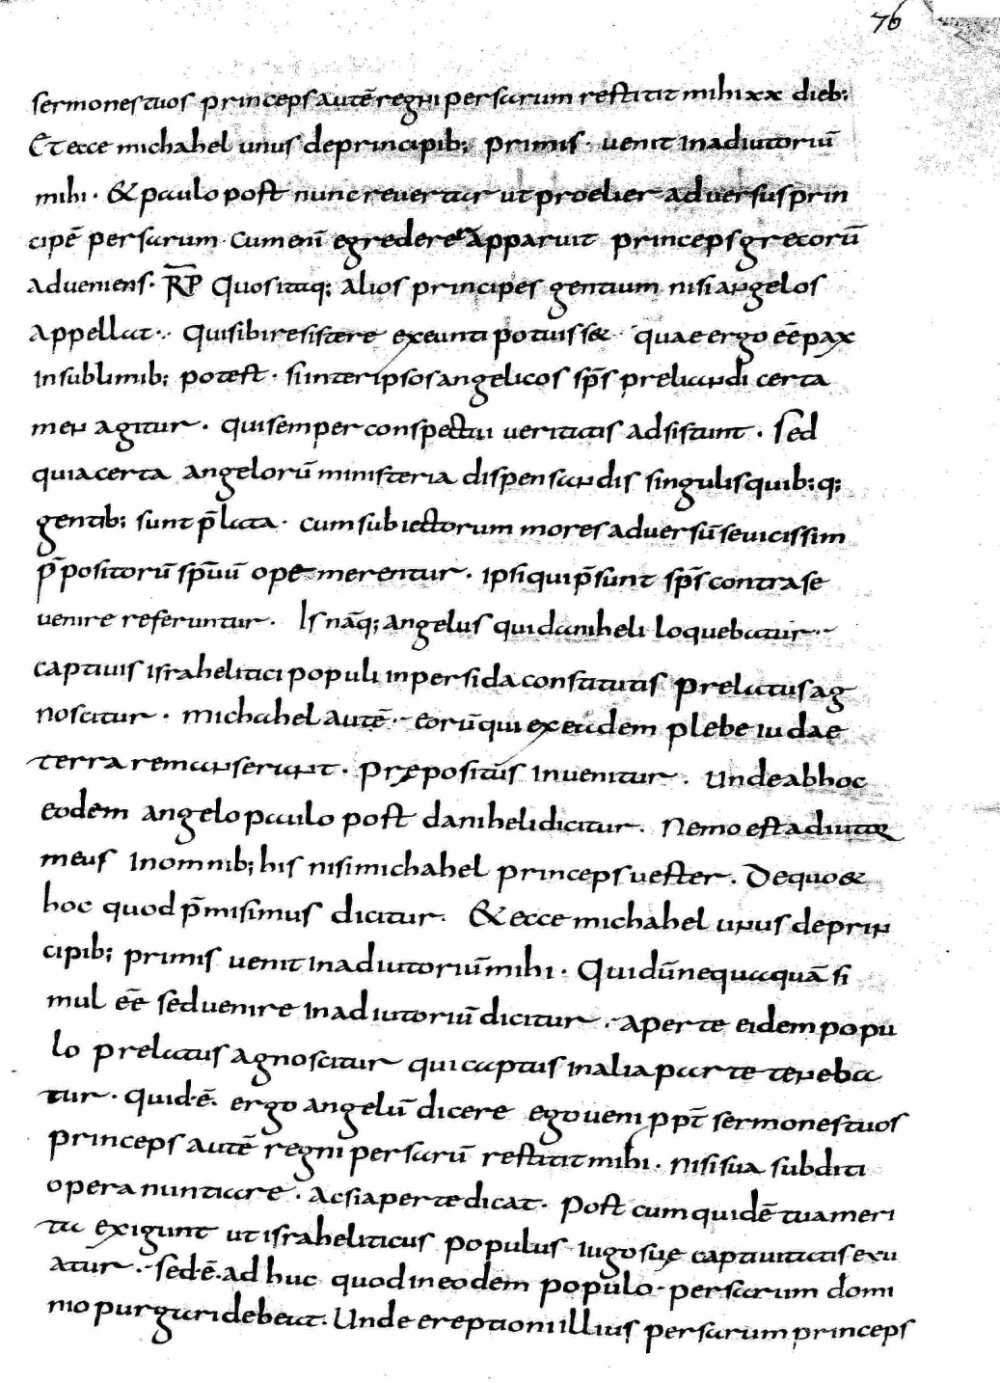 76
sermones tuos princeps autē regni persarum restitit mihi xx dieb;
Et ecce michahel unus de principib; primis · venit in adiutoriū
mihi · & paulo post nunc revertar ut proelier adversus prin
cipē persarum · cum enī egrederer apparuit princeps grecorū
adveniens · R̄P̄ Quos itaq; alios principes gentium nisi angelos
appellat · Qui sibi resistere exeunti potuiss& · quae ergo eē pax
in sublimib; potest · si inter ipsos angelicos sp̄s preliandi certa
men agitur · qui semper conspectui veritatis adsistunt · Sed
quia certa angelorū ministeria dispensandis singulis quib;q;
gentib; sunt p̄lata · cum subiectorum mores adversū se vicissim
p̄positorū sp̄uū ope merentur · ipsi qui p̄sunt sp̄s contra se
venire referuntur · Is nāq; angelus qui daniheli loquebatur ·
captivis israhelitici populi in persida constitutis prelatus ag
noscitur · michahel autē · eorū qui ex eadem plebe iudae
terra remanserunt · prępositus invenitur · Unde ab hoc
eodem angelo paulo post daniheli dicitur · Nemo est adiutor
meus in omnib; his nisi michahel princeps vester · De quo &
hoc quod p̄misimus dicitur · & ecce michahel unus de prin
cipib; primis venit in adiutoriū mihi · Qui dū nequaquā si
mul eē sed venire in adiutoriū dicitur · aperte eidem popu
lo prelatus agnoscitur qui captus in alia parte teneba
tur · quid · ē · ergo angelū dicere ego veni ppt̄ sermones tuos
princeps autē regni persarū restitit mihi · nisi sua subditi
opera nuntiare · ac si aperte dicat · Post cum quidē tua meri
ta exigunt ut israheliticus populus iugo suę captivitatis exu
atur · sed · ē · adhuc quod in eodem populo · persarum domi
nio purgari debeat · Unde ereptioni illius persarum princeps